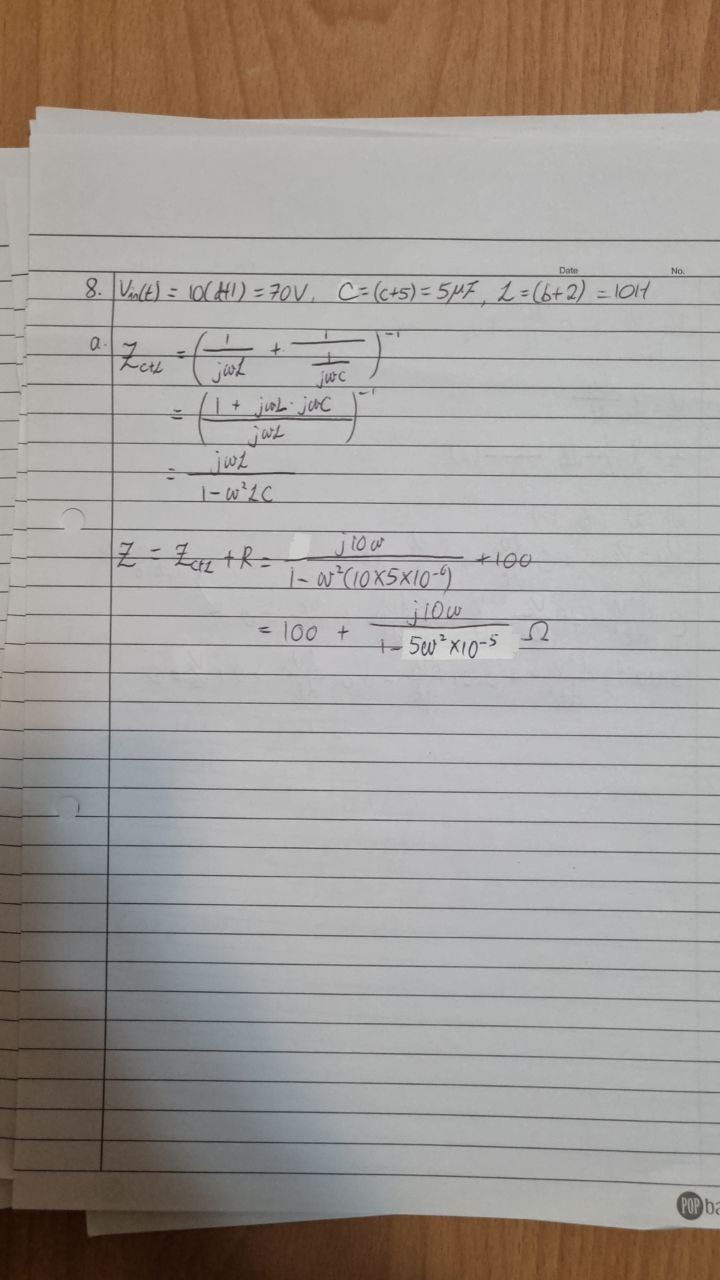 Date No.
8. Vin(t) = 10(d+1) = 70V, C = (c+5) = 5μF, L = (b+2) = 10H
a. Z_C+L = (1/jωL + 1/(1/jωC))^-1
= ((1 + jωL · jωC)/jωL)^-1
= jωL/(1-ω²LC)
Z = Z_C+L + R = j10ω/(1-ω²(10×5×10^-6)) + 100
= 100 + j10ω/(1-5ω²×10^-5) Ω
POP ba